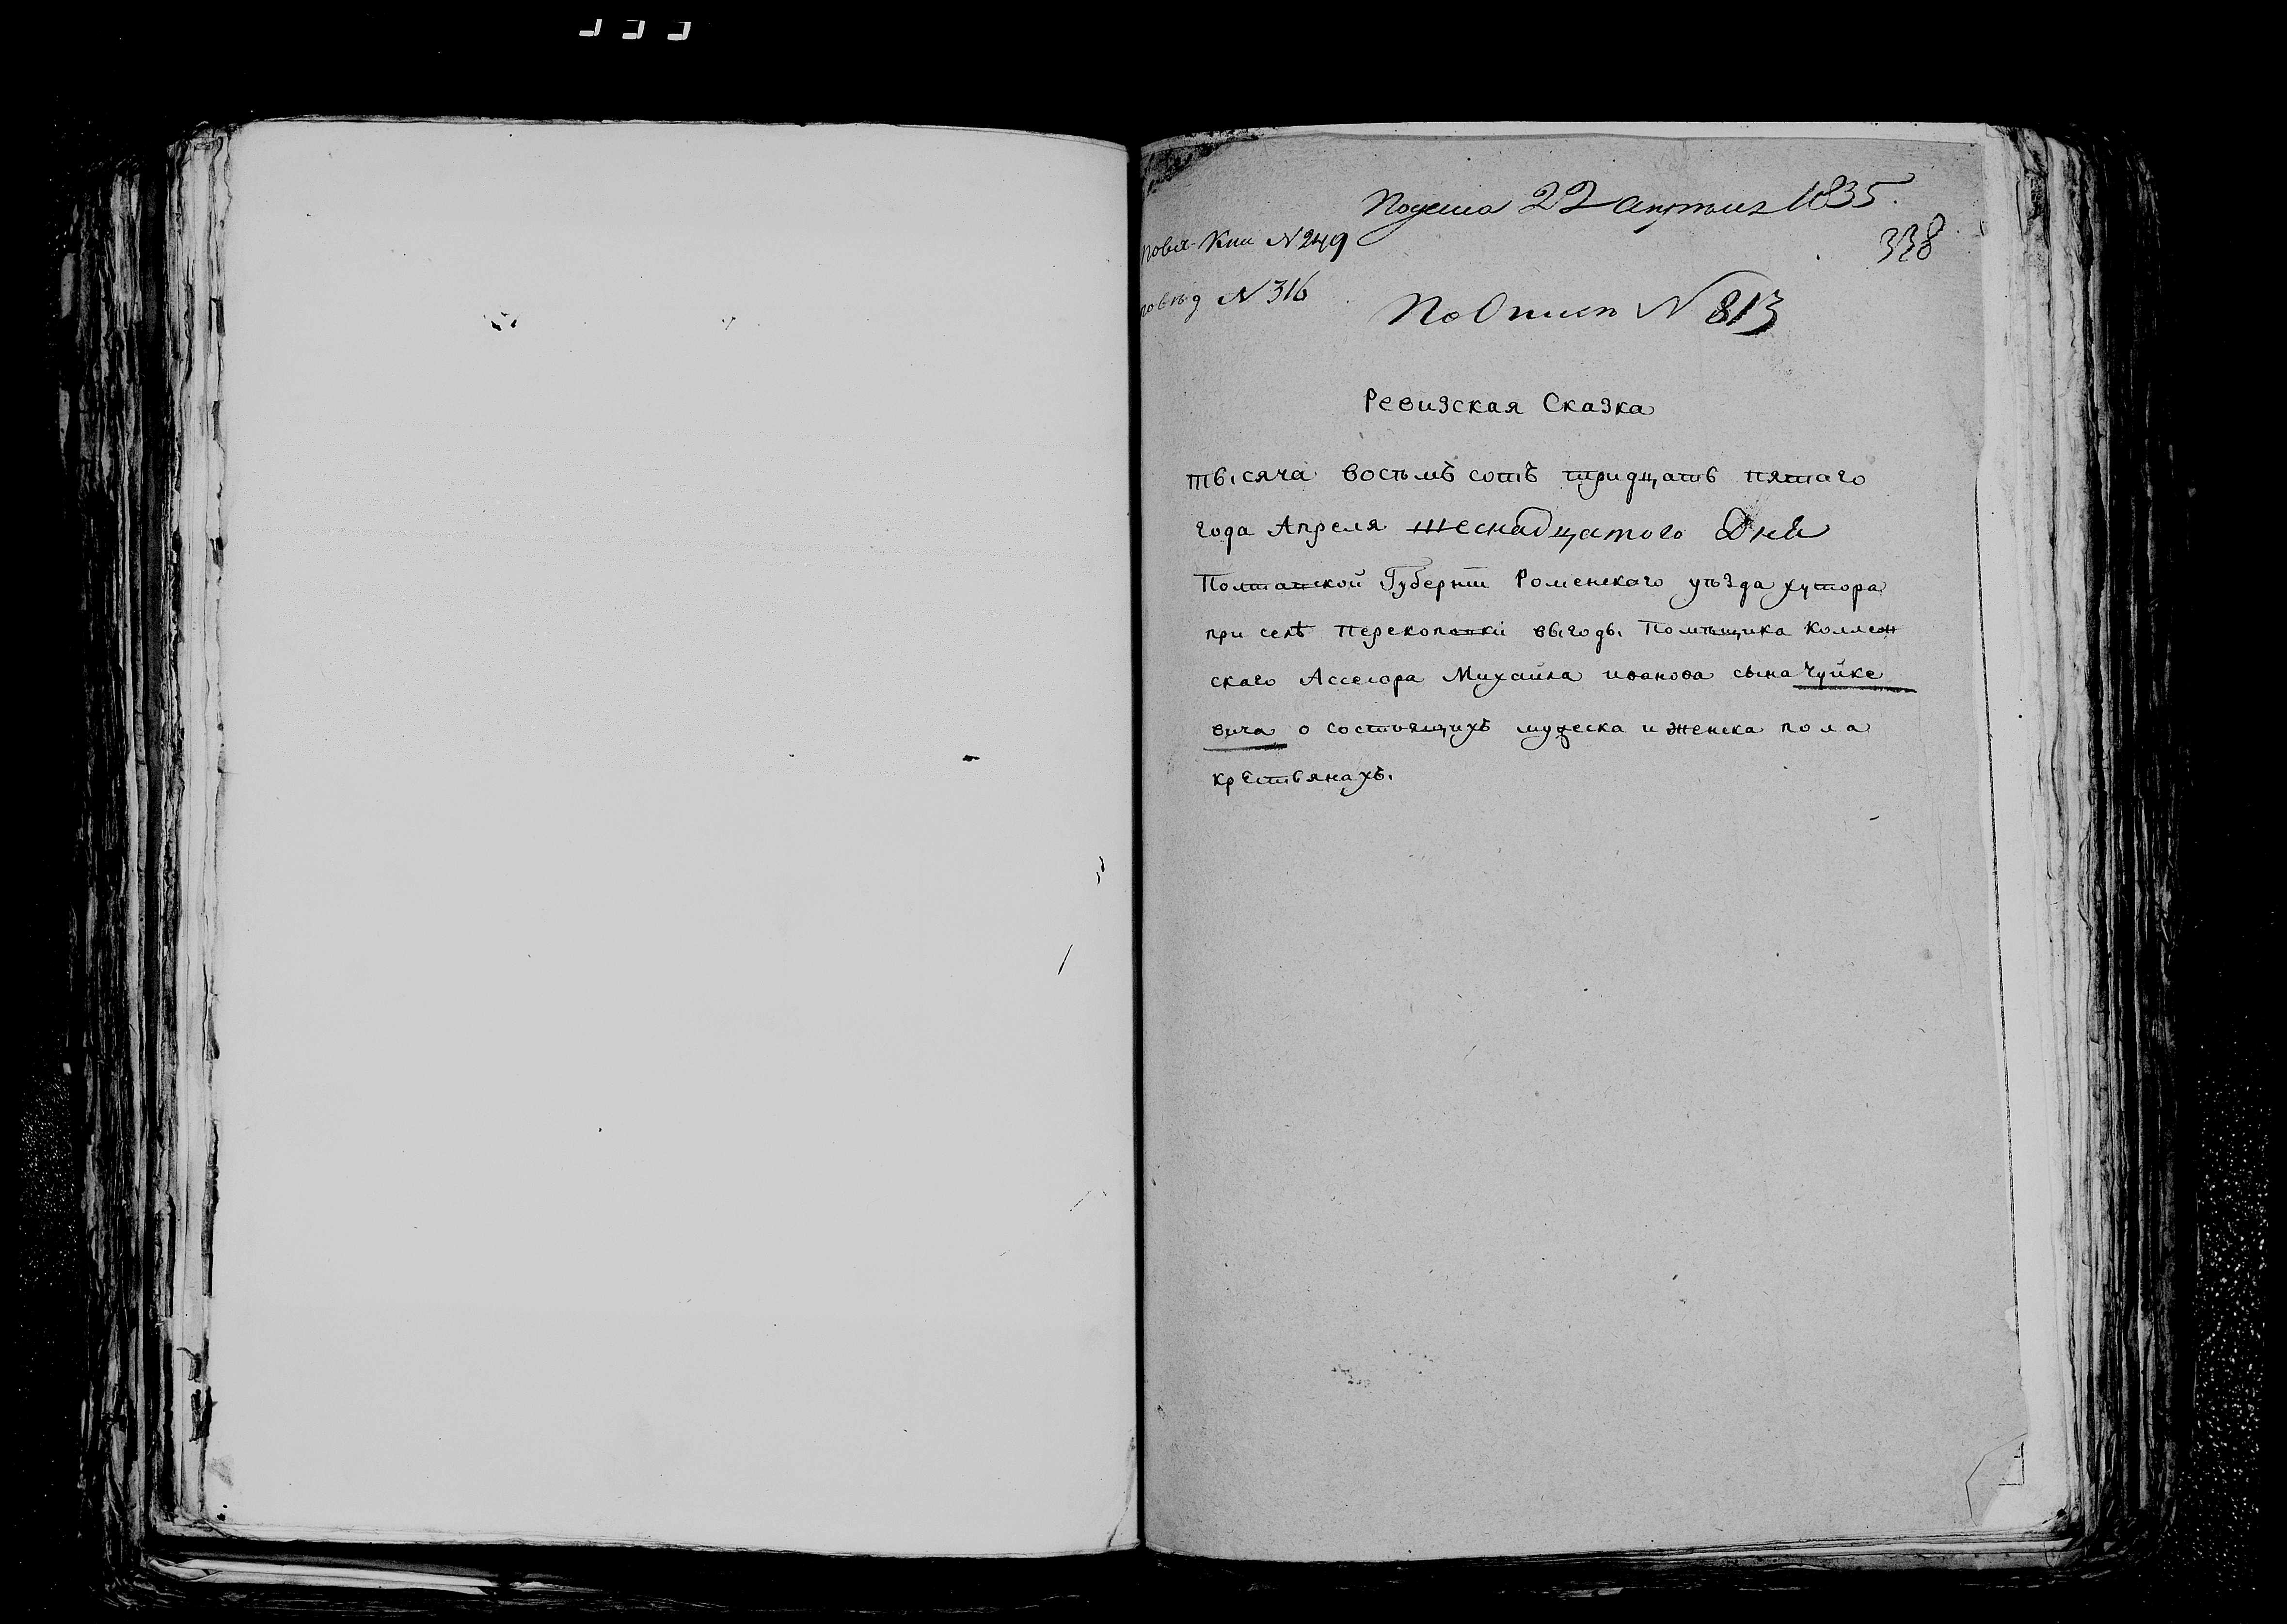 Подана 22 апреля 1835.
338
По вед N 316
По Описи N 813
Ревизская Сказка
тысяча восемъ сотъ тридцать пятаго
года Апреля шеснадцатого Дня
Полтавской Губернии Роменскаго уѣзда хутора
при селѣ Перекоповки выгоды Помѣщика Коллеж
скаго Ассесора Михайла иванова сына Чуйке
вича о состоящихъ мужеска и женска пола
крестьянахъ.